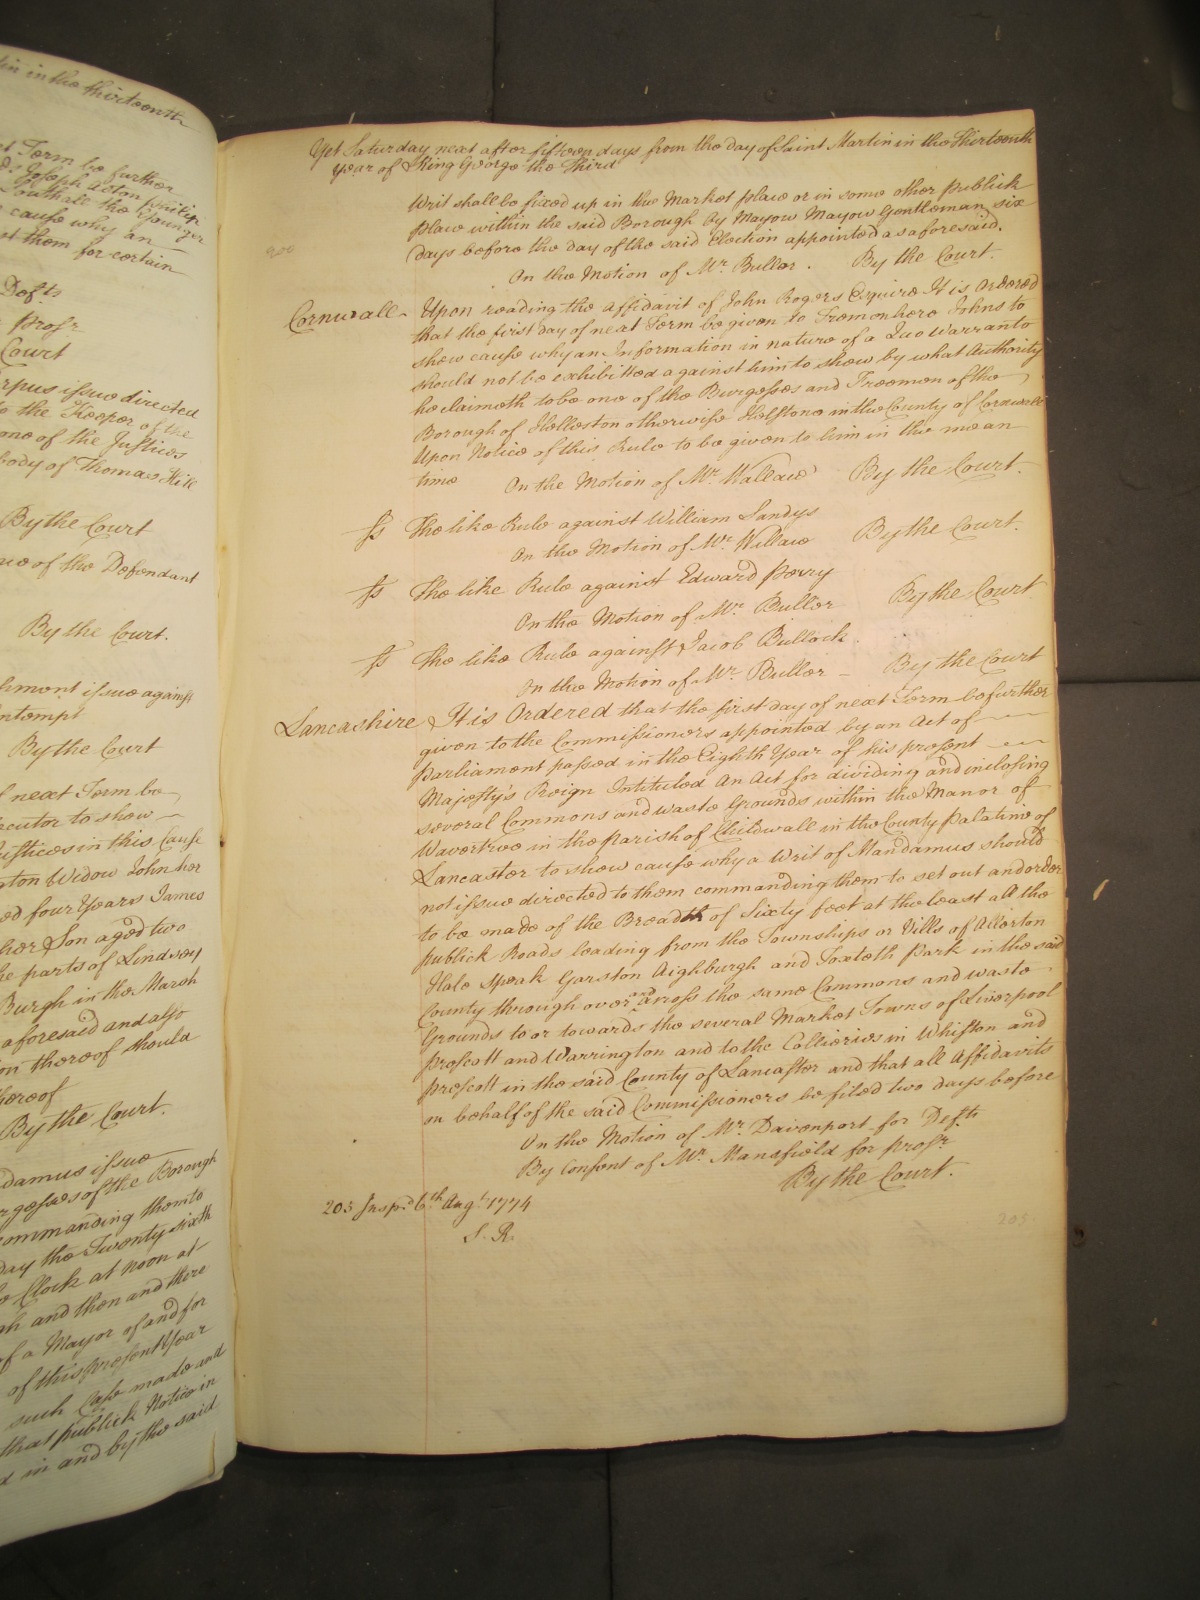 tin in the thirteenth
t Term be further
Joseph Acton Philip
Nuthall the Younger
cause why an
st them for certain
Defts
Prosr
Court
rpus issue directed
o the Keeper of the
one of the Justices
body of Thomas Hill
By the Court
nce of the Defendant
By the Court.
hment issue against
ntempt
By the Court
f next Term be
ecutor to show
Justices in this Cause
gton Widow John her
ed four Years James
her Son aged two
he parts of Lindsey
Burgh in the Marsh
aforesaid and also
on thereof should
thereof
By the Court.
damus issue
rgesses of the Borough
ommanding them to
day the Twenty sixth
o Clock at noon at
gh and then and there
of a Mayor of and for
of this present Year
such Case made and
that publick Notice in
d in and by the said
Yet Saturday next after fifteen days from the day of Saint Martin in the Thirteenth
Year of King George the Third
Writ shall be fixed up in the Market place or in some other publick
place within the said Borough by Mayow Mayow Gentleman six
days before the day of the said Election appointed as aforesaid.
On the Motion of Mr. Buller. By the Court.
Cornwall Upon reading the Affidavit of John Rogers Esquire It is Ordered
that the first day of next Term be given to Tremenhere Johns to
show cause why an Information in nature of a Quo Warranto
should not be exhibitted against him to show by what Authority
he claimeth to be one of the Burgesses and Freemen of the
Borough of Helleston otherwise Helstone in the County of Cornwall
Upon Notice of this Rule to be given to him in the mean
time On the Motion of Mr. Wallace By the Court.
Ss The like Rule against William Sandys
On the Motion of Mr. Wallace By the Court.
Ss The like Rule against Edward Perry
On the Motion of Mr. Buller By the Court
Ss The like Rule against Jacob Bullock.
On the Motion of Mr. Buller By the Court
Lancashire It is Ordered that the first day of next Term be further
given to the Commissioners appointed by an Act of
Parliament passed in the Eighth Year of his present
Majesty's Reign Intituled An Act for dividing and inclosing
several Commons and waste Grounds within the Manor of
Wavertree in the parish of Childwall in the County Palatine of
Lancaster to show cause why a Writ of Mandamus should
not issue directed to them commanding them to set out and order
to be made of the Breadth of Sixty feet at the least all the
publick Roads leading from the Townships or Vills of Allerton
Hale Speak Garston Aighburgh and Toxteth Park in the said
County through over and across the same Commons and waste
Grounds to or towards the several Market Towns of Liverpool
Prescott and Warrington and to the Collieries in Whiston and
Prescott in the said County of Lancaster and that all Affidavits
on behalf of the said Commissioners be filed two days before
On the Motion of Mr. Davenport for Defts
By Consent of Mr. Mansfield for Prosr.
By the Court.
203 Inspd. 6th Augt. 1774
S. R.
203